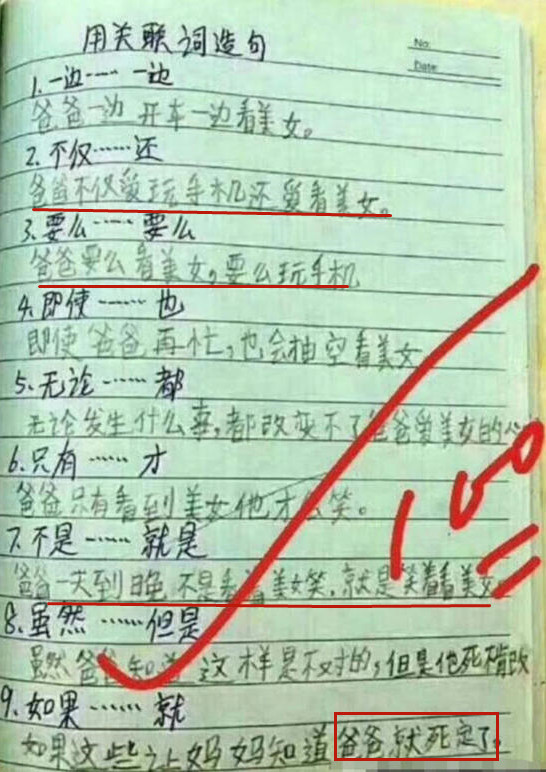 用关联词造句
No:
Date:
1.一边……一边
爸爸一边开车一边看美女。
2.不仅……还
爸爸不仅爱玩手机还爱看美女。
3.要么……要么
爸爸要么看美女,要么玩手机
4.即使……也
即使爸爸再忙,也会抽空看美女
5.无论……都
无论发生什么事,都改变不了爸爸爱美女的心
6.只有……才
爸爸只有看到美女他才会笑。
7.不是……就是
爸爸一天到晚不是看着美女笑,就是笑着看美女。
8.虽然……但是
虽然爸爸知道这样是不对的,但是他死不悔改
9.如果……就
如果这些让妈妈知道爸爸就死定了。
100